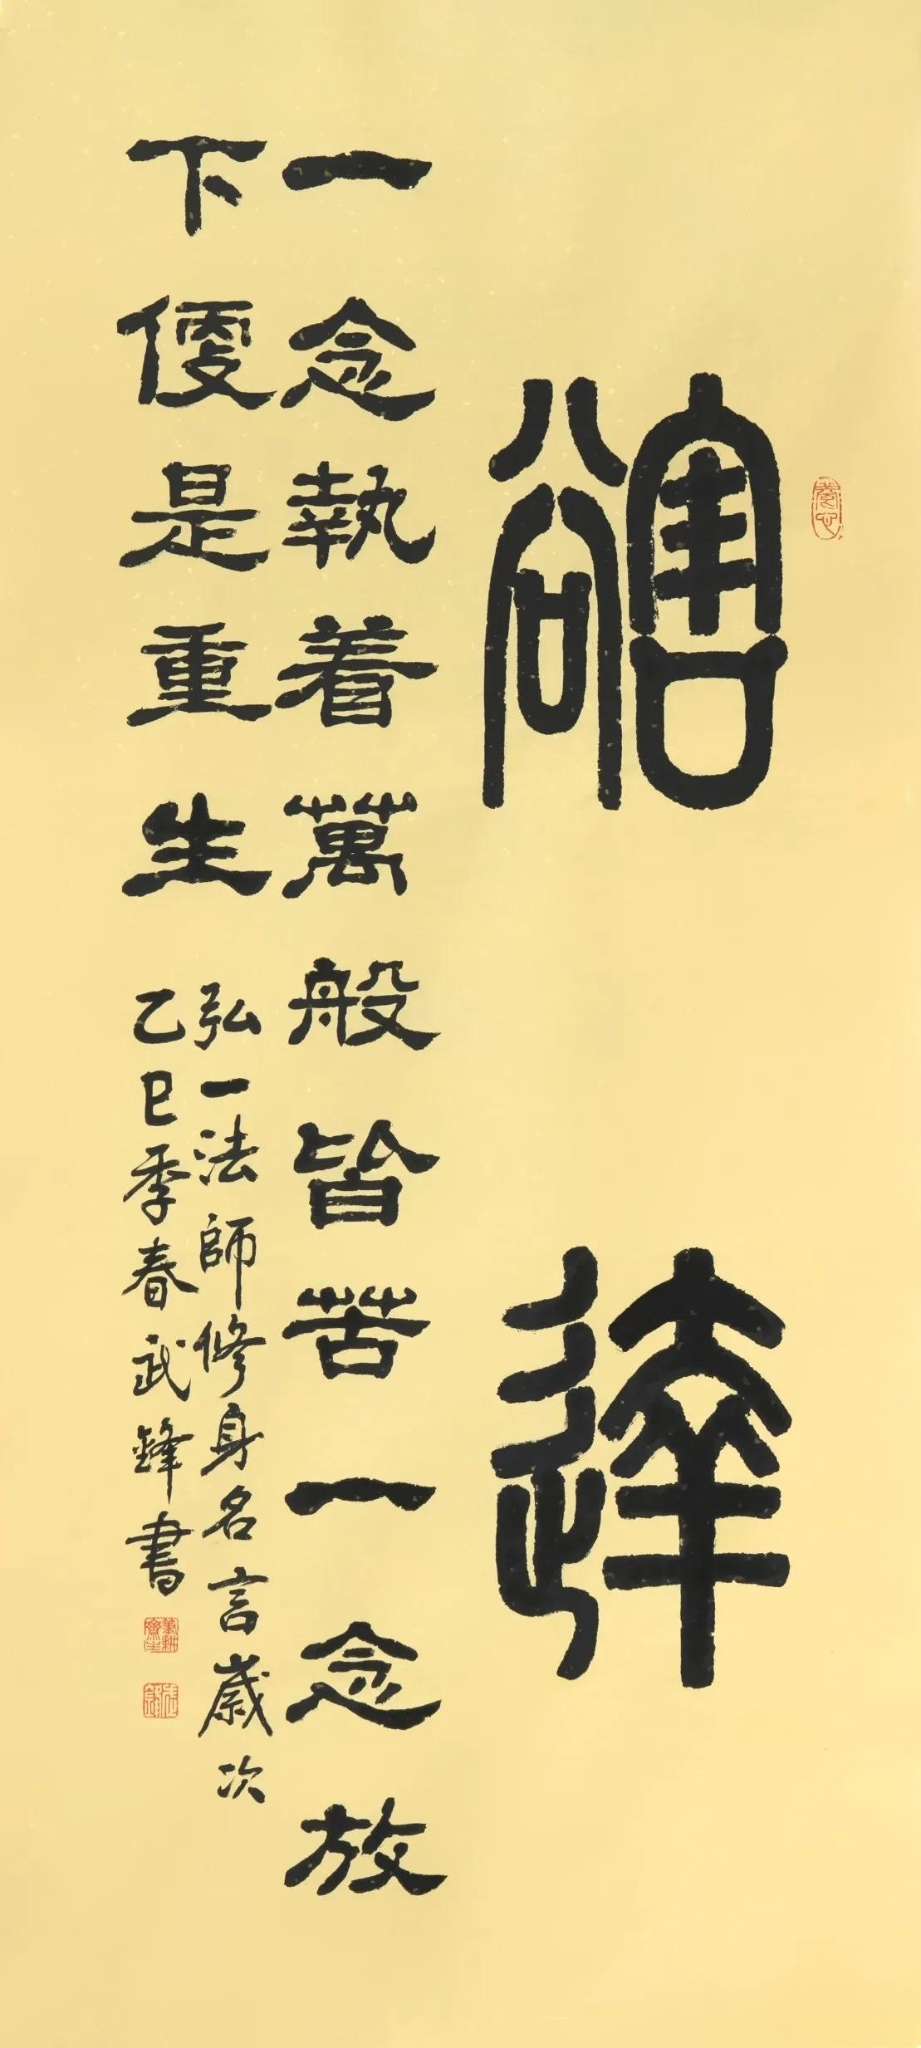 豁達
一念執着萬般皆苦一念放
下便是重生
弘一法師修身名言歲次
乙巳季春武鋒書